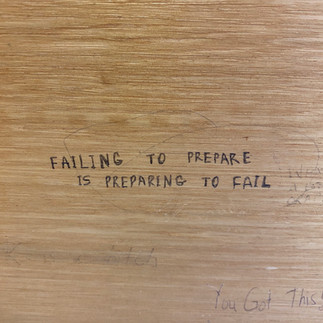 FAILING TO PREPARE
IS PREPARING TO FAIL
You Got This!